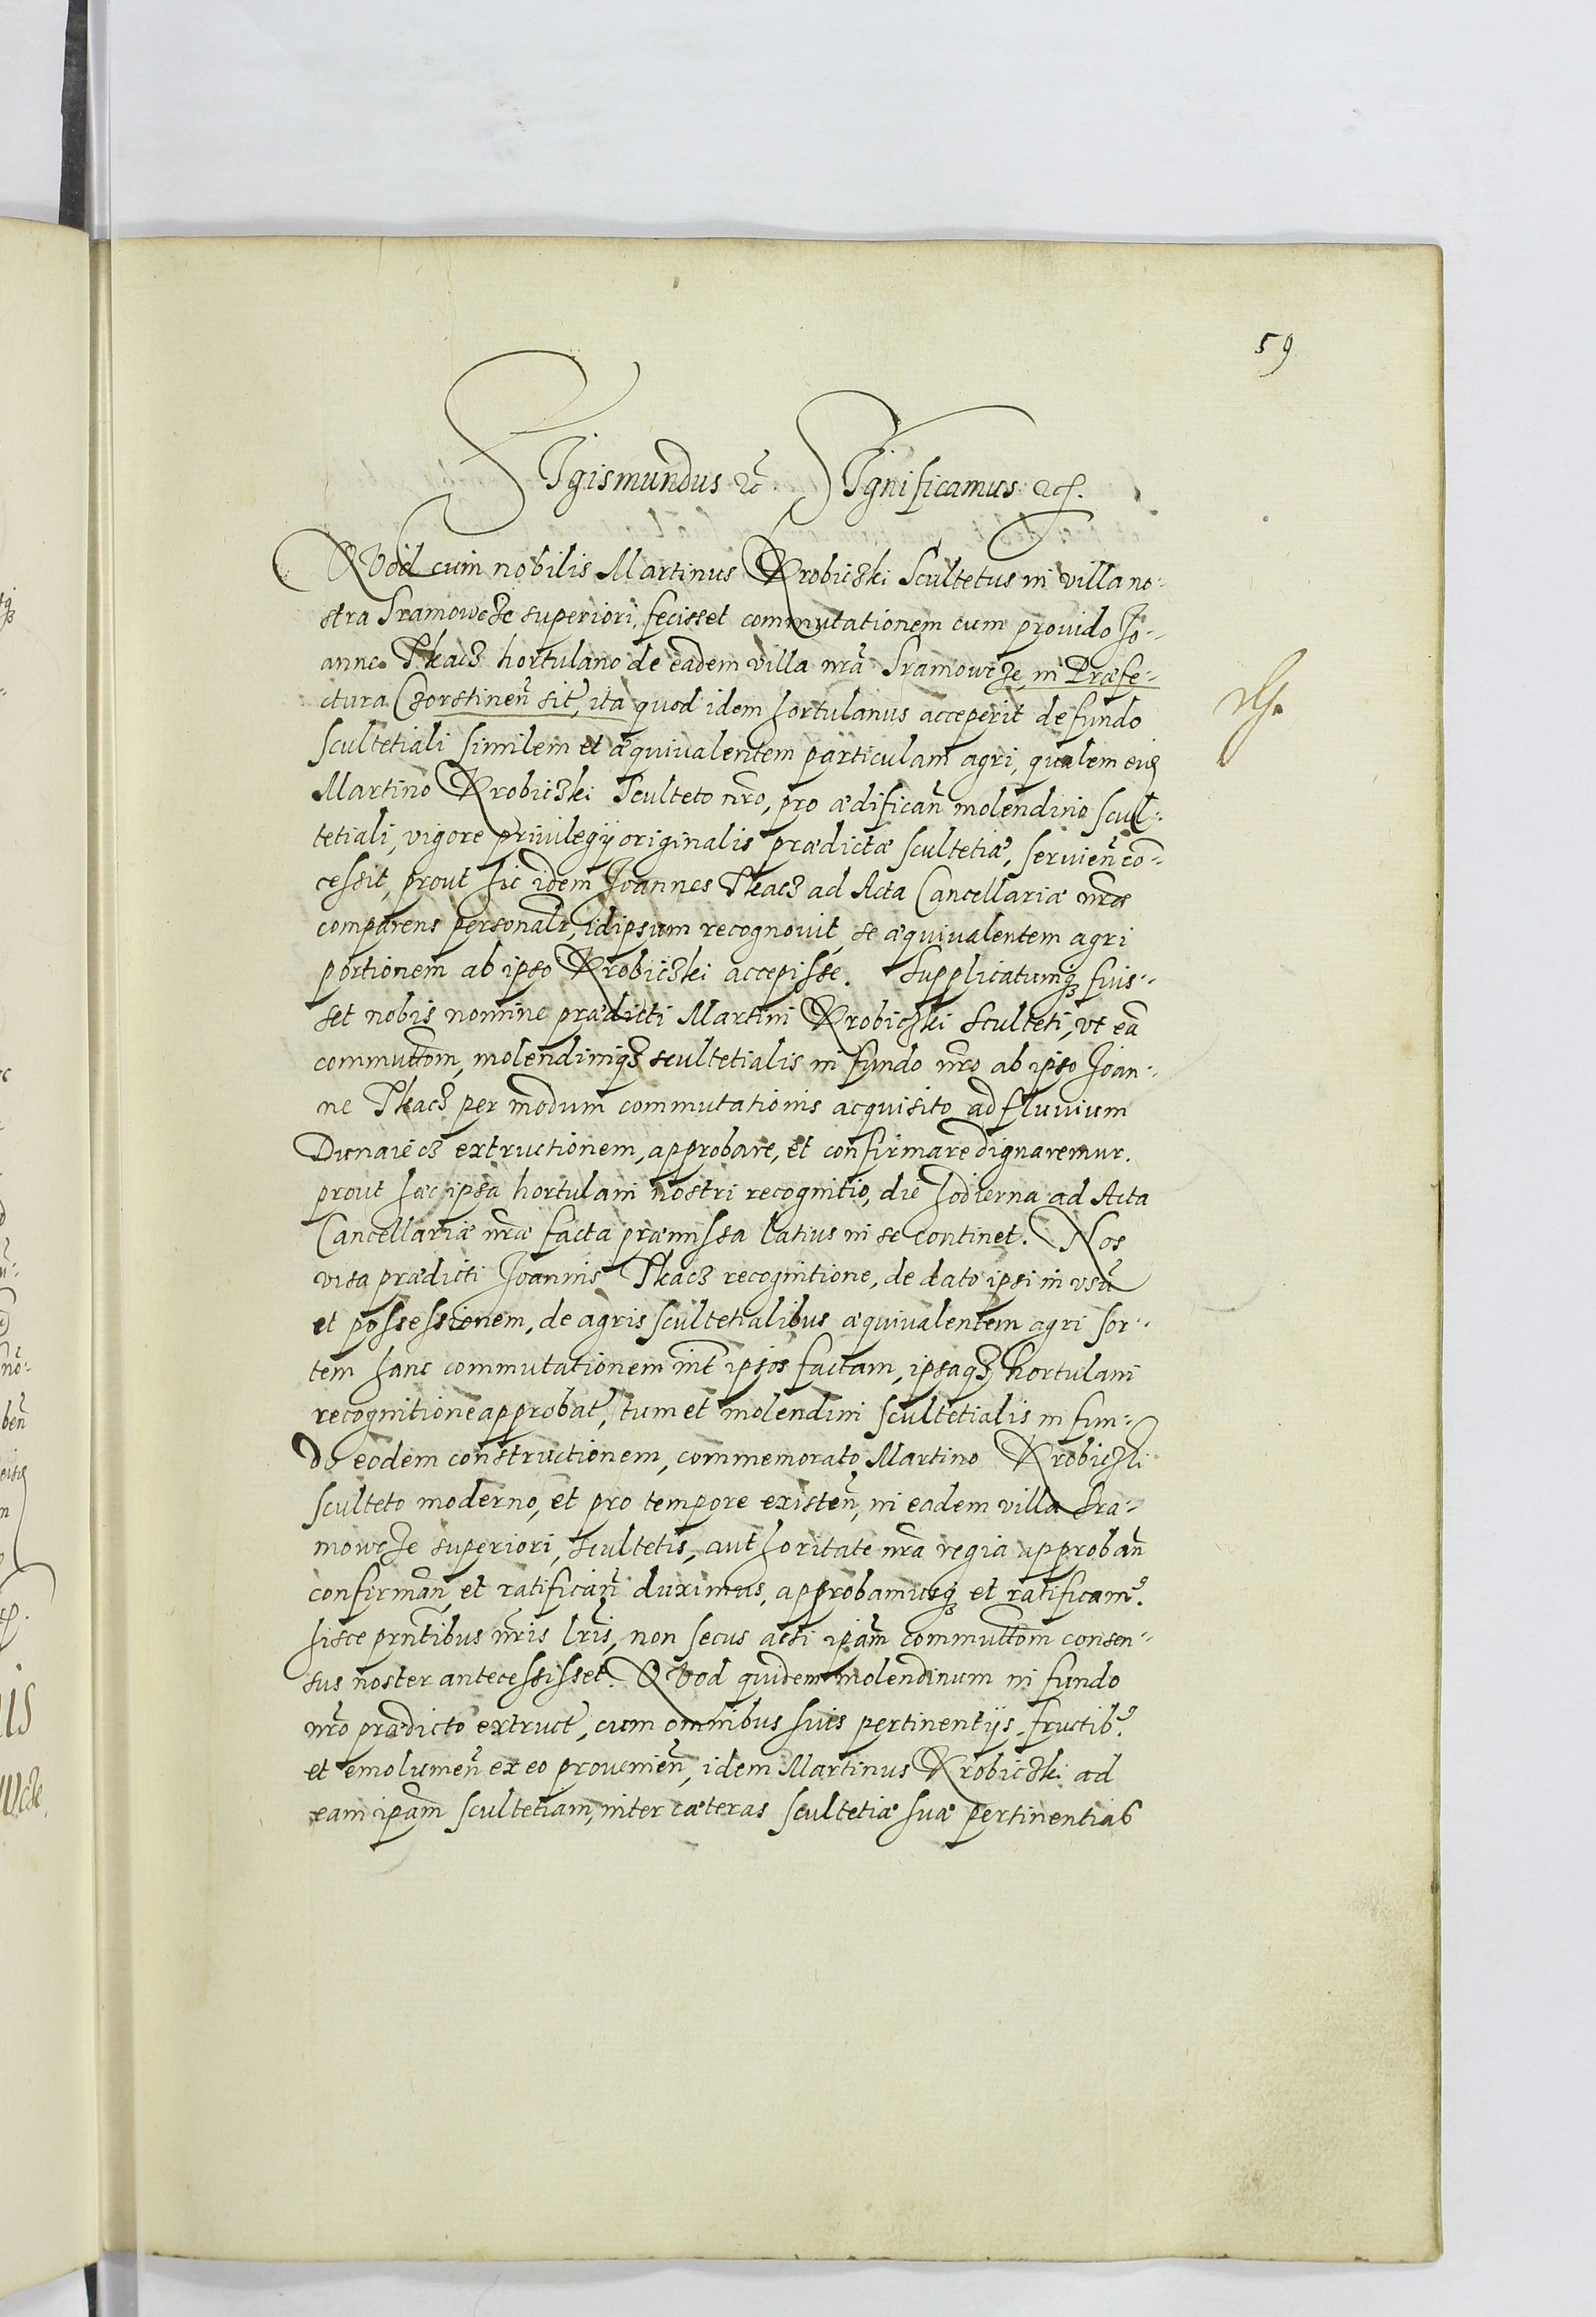 59
Sigismundus etc. Significamus etc.
QVod cum nobilis Martinus Krobiczki Scultetus in villa no-
stra Sramowcze superiori, fecisset commutationem cum prouido Jo-
anne Tkacz hortulano de eadem villa nrã Sramowcze, in Præfe-
ctura Czorstinen̄ sit̃, ita quod idem hortulanus acceperit de fundo
scultetiali similem et æquiualentem particulam agri, qualem eidẽ
Martino Krobiczki Sculteto nr̃o, pro ædifican̄ molendino scul-
tetiali, vigore priuilegij originalis prædictæ scultetiæ, seruien̄ cõ-
cessit, prout hic idem Joannes Tkacz ad Acta Cancellariæ nr̃æ
comparens personalr̃, idipsum recognouit, se æquiualentem agri
portionem ab ipso Krobiczki accepisse. Supplicatumqz fuis-
set nobis nomine prædicti Martini Krobiczki Sculteti, vt eã
commut̃tõm, molendiniqz scultetialis in fundo nr̃o ab ipso Joan-
ne Tkacz per modum commutationis acquisito ad fluuium
Dunaiecz extructionem, approbare, et confirmare dignaremur.
prout hæc ipsa hortulani nostri recognitio, die hodierna ad Acta
Cancellariæ nr̃æ facta præmissa latius in se continet. Nos
visa prædicti Joannis Tkacz recognitione, de dato ipsi in vsũ
et possessionem, de agris scultetialibus æquiualentem agri sor-
tem hanc commutationem int̃ ipsos factam, ipsaqz hortulani
recognitione approbat̃, tum et molendini scultetialis in fun-
do eodem constructionem, commemorato Martino Krobiczki
sculteto moderno, et pro tempore existen̄, in eadem villa Sra-
mowcze superiori, scultetis, authoritate nr̃a regia approban̄
confirman̄, et ratifican̄ duximus, approbamusqz et ratificam9.
hisce prñtibus nr̃is lr̃is, non secus acsi ipãm commut̃tõm consen-
sus noster antecessisset. QVod quidem molendinum in fundo
nr̃o prædicto extruct̃, cum omnibus suis pertinentijs, fructib9.
et emolumen̄ ex eo prouenien̄, idem Martinus Krobiczki ad
eam ipãm scultetiam, inter cæteras scultetiæ suæ pertinentias